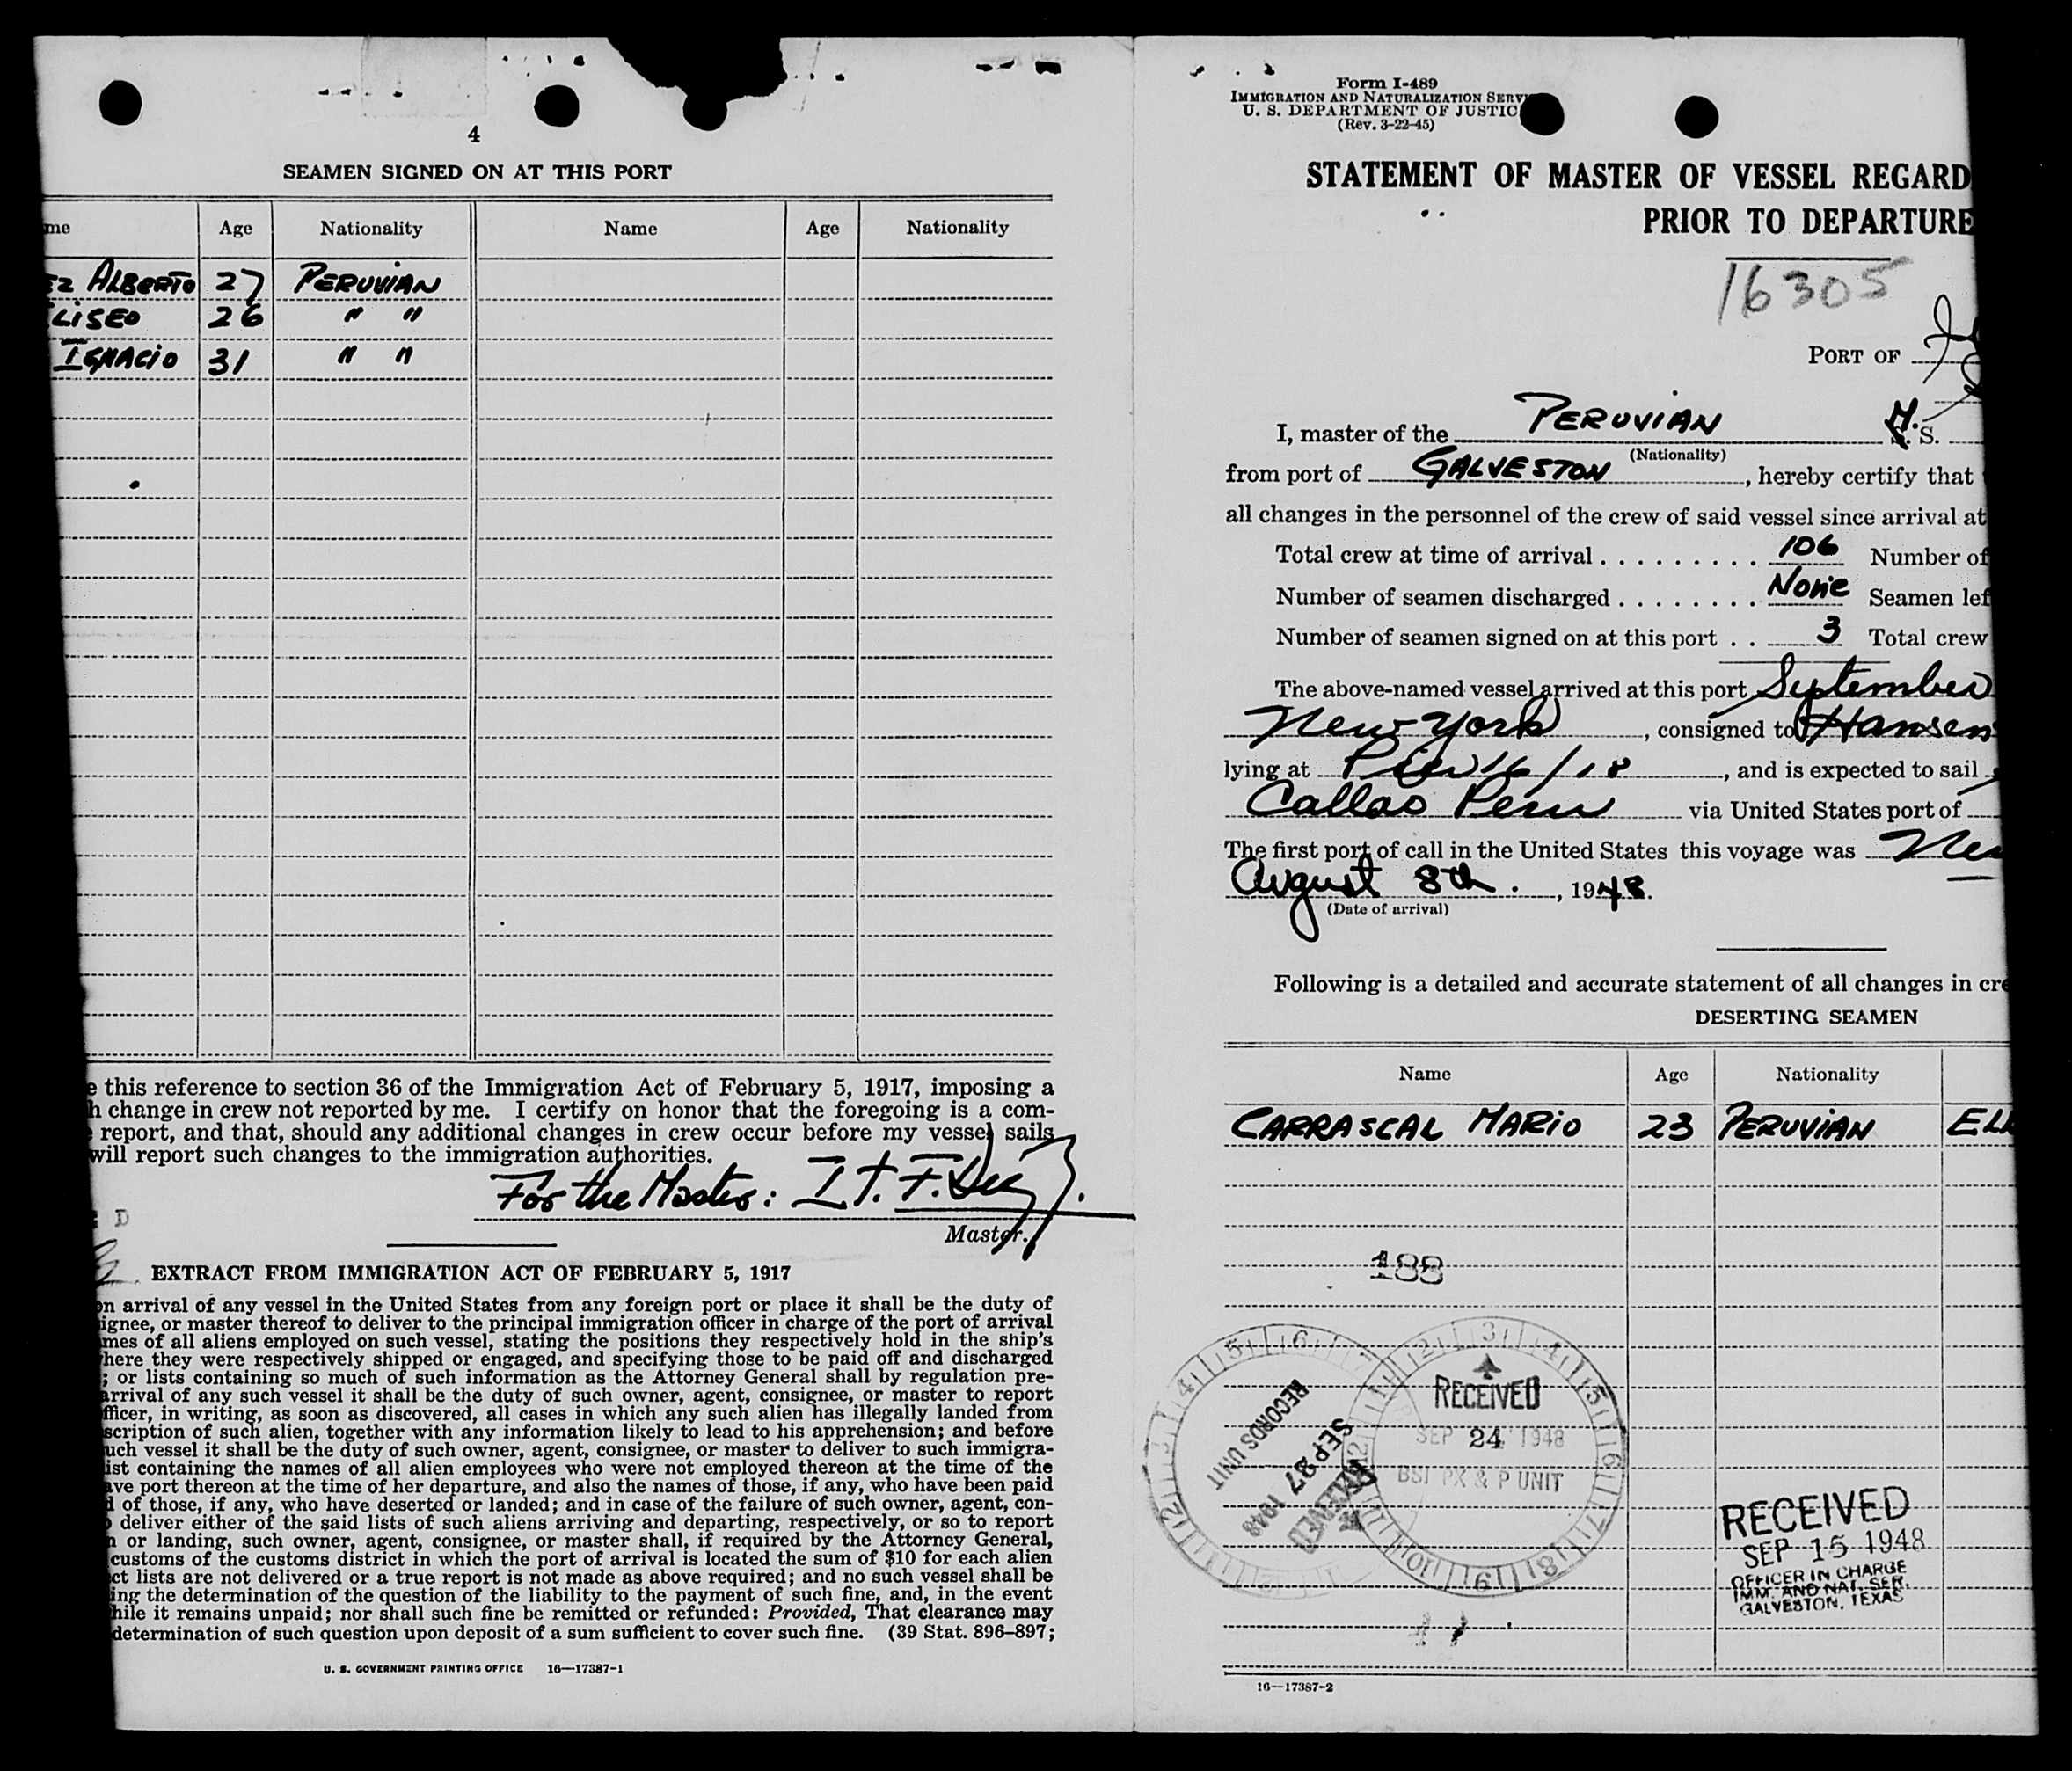 4
SEAMEN SIGNED ON AT THIS PORT
me Age Nationality Name Age Nationality
EZ ALBERTO 27 PERUVIAN
LISEO 26 " "
IGNACIO 31 " "
e this reference to section 36 of the Immigration Act of February 5, 1917, imposing a
h change in crew not reported by me. I certify on honor that the foregoing is a com-
report, and that, should any additional changes in crew occur before my vessel sails
will report such changes to the immigration authorities.
For the Master: Lt. F.
Master.
D
EXTRACT FROM IMMIGRATION ACT OF FEBRUARY 5, 1917
on arrival of any vessel in the United States from any foreign port or place it shall be the duty of
ignee, or master thereof to deliver to the principal immigration officer in charge of the port of arrival
mes of all aliens employed on such vessel, stating the positions they respectively hold in the ship's
here they were respectively shipped or engaged, and specifying those to be paid off and discharged
; or lists containing so much of such information as the Attorney General shall by regulation pre-
arrival of any such vessel it shall be the duty of such owner, agent, consignee, or master to report
fficer, in writing, as soon as discovered, all cases in which any such alien has illegally landed from
scription of such alien, together with any information likely to lead to his apprehension; and before
uch vessel it shall be the duty of such owner, agent, consignee, or master to deliver to such immigra-
ist containing the names of all alien employees who were not employed thereon at the time of the
ave port thereon at the time of her departure, and also the names of those, if any, who have been paid
d of those, if any, who have deserted or landed; and in case of the failure of such owner, agent, con-
o deliver either of the said lists of such aliens arriving and departing, respectively, or so to report
n or landing, such owner, agent, consignee, or master shall, if required by the Attorney General,
customs of the customs district in which the port of arrival is located the sum of $10 for each alien
ct lists are not delivered or a true report is not made as above required; and no such vessel shall be
ing the determination of the question of the liability to the payment of such fine, and, in the event
hile it remains unpaid; nor shall such fine be remitted or refunded: Provided, That clearance may
determination of such question upon deposit of a sum sufficient to cover such fine. (39 Stat. 896–897;
U. S. GOVERNMENT PRINTING OFFICE 16—17387-1
Form I-489
IMMIGRATION AND NATURALIZATION SERV
U. S. DEPARTMENT OF JUSTIC
(Rev. 3-22-45)
STATEMENT OF MASTER OF VESSEL REGARD
PRIOR TO DEPARTURE
16305
PORT OF
I, master of the PERUVIAN M. S.
(Nationality)
from port of GALVESTON, hereby certify that
all changes in the personnel of the crew of said vessel since arrival at
Total crew at time of arrival 106 Number of
Number of seamen discharged None Seamen lef
Number of seamen signed on at this port 3 Total crew
The above-named vessel arrived at this port September
New York, consigned to Hansen
lying at Pier 16/18, and is expected to sail
Callao Peru via United States port of
The first port of call in the United States this voyage was Ne
August 8th., 1948.
(Date of arrival)
Following is a detailed and accurate statement of all changes in cre
DESERTING SEAMEN
Name Age Nationality
CARRASCAL MARIO 23 PERUVIAN
188
RECEIVED
SEP 24 1948
BSI PX & P UNIT
RECORDS UNIT
SEP 27 1948
RECEIVED
RECEIVED
SEP 15 1948
OFFICER IN CHARGE
IMM. AND NAT. SER.
GALVESTON, TEXAS
16—17387-2